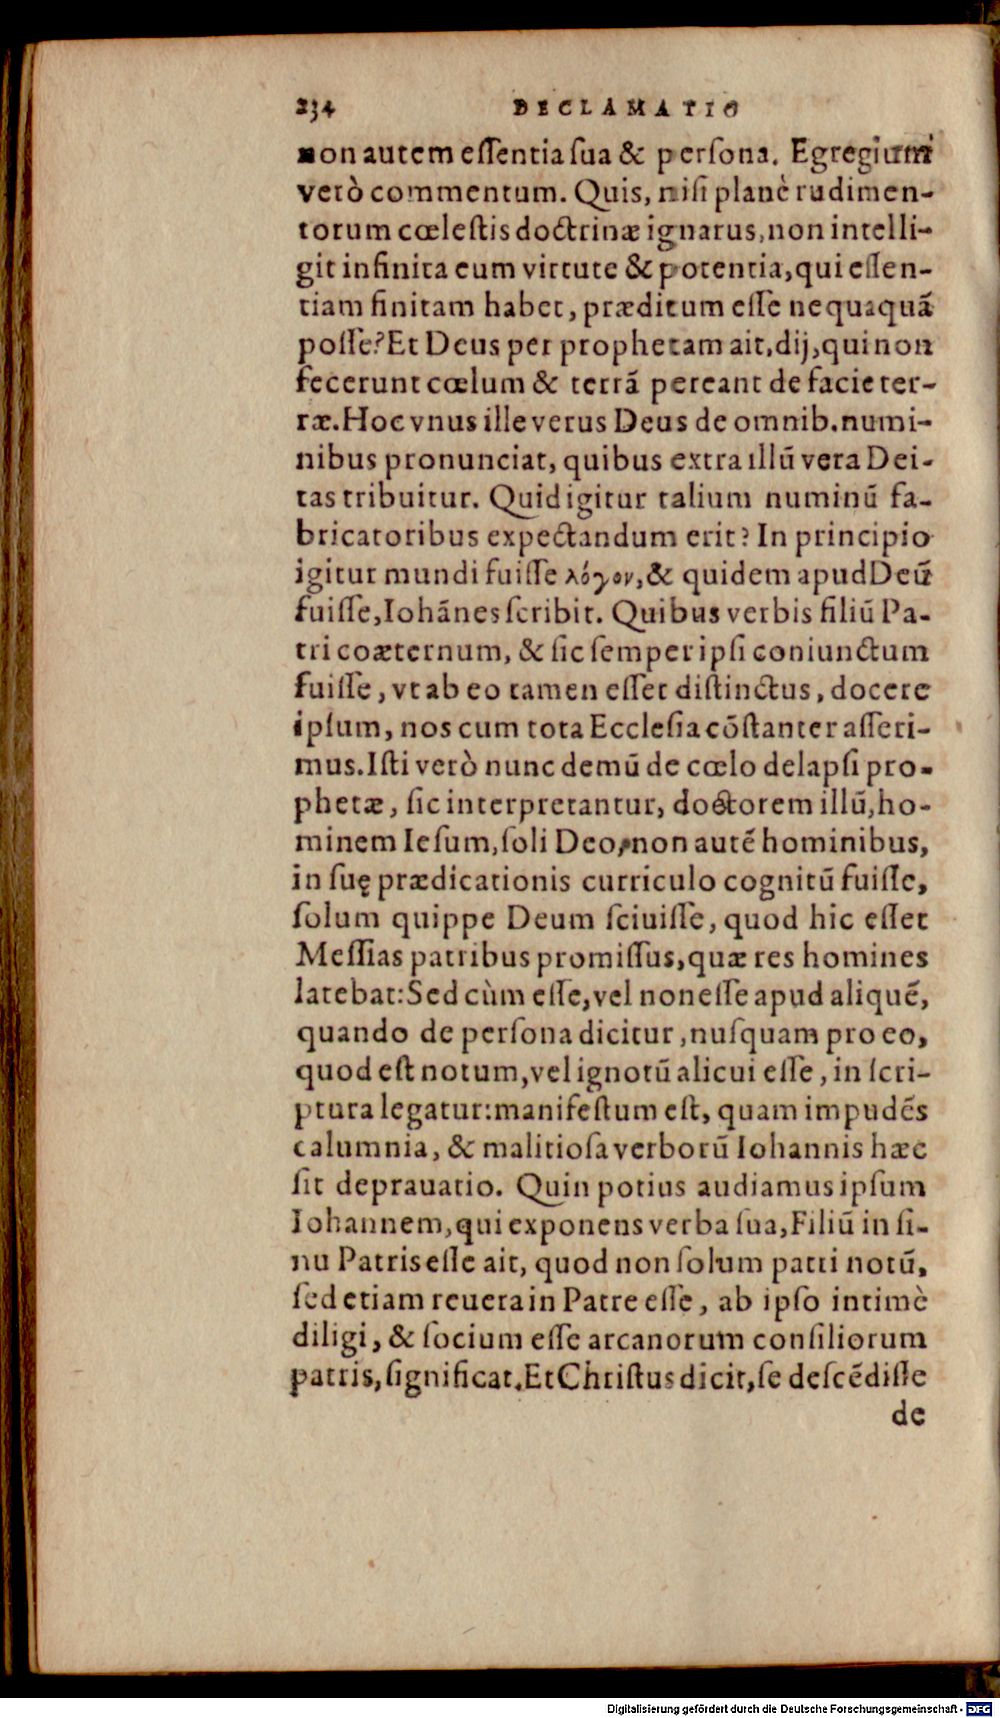 234 DECLAMATIO
non autem eſſentia ſua & perſona. Egregium
verò commentum. Quis, niſi planè rudimen-
torum cœleſtis doctrinæ ignarus, non intelli-
git infinita eum virtute & potentia, qui eſſen-
tiam finitam habet, præditum eſſe nequaquã
poſſe? Et Deus per prophetam ait, dij, qui non
fecerunt cœlum & terrã pereant de facie ter-
ræ. Hoc vnus ille verus Deus de omnib. numi-
nibus pronunciat, quibus extra illũ vera Dei-
tas tribuitur. Quid igitur talium numinũ fa-
bricatoribus expectandum erit? In principio
igitur mundi fuiſſe λόγον, & quidem apud Deũ
fuiſſe, Iohãnes ſcribit. Quibus verbis filiũ Pa-
tri coæternum, & ſic ſemper ipſi coniunctum
fuiſſe, vt ab eo tamen eſſet diſtinctus, docere
ipſum, nos cum tota Eccleſia cõſtanter aſſeri-
mus. Iſti verò nunc demũ de cœlo delapſi pro-
phetæ, ſic interpretantur, doctorem illũ, ho-
minem Ieſum, ſoli Deo, non autẽ hominibus,
in ſuę prædicationis curriculo cognitũ fuiſſe,
ſolum quippe Deum ſciuiſſe, quod hic eſſet
Meſſias patribus promiſſus, quæ res homines
latebat: Sed cùm eſſe, vel non eſſe apud aliquẽ,
quando de perſona dicitur, nuſquam pro eo,
quod eſt notum, vel ignotũ alicui eſſe, in ſcri-
ptura legatur: manifeſtum eſt, quam impudẽs
calumnia, & malitioſa verborũ Iohannis hæc
ſit deprauatio. Quin potius audiamus ipſum
Iohannem, qui exponens verba ſua, Filiũ in ſi-
nu Patris eſſe ait, quod non ſolum patri notũ,
ſed etiam reuera in Patre eſſe, ab ipſo intimè
diligi, & ſocium eſſe arcanorum conſiliorum
patris, ſignificat. Et Chriſtus dicit, ſe deſcẽdiſſe
de
Digitalisierung gefördert durch die Deutsche Forschungsgemeinschaft - DFG